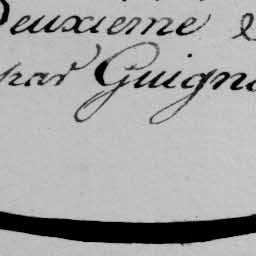 Deuxieme &
par Guign